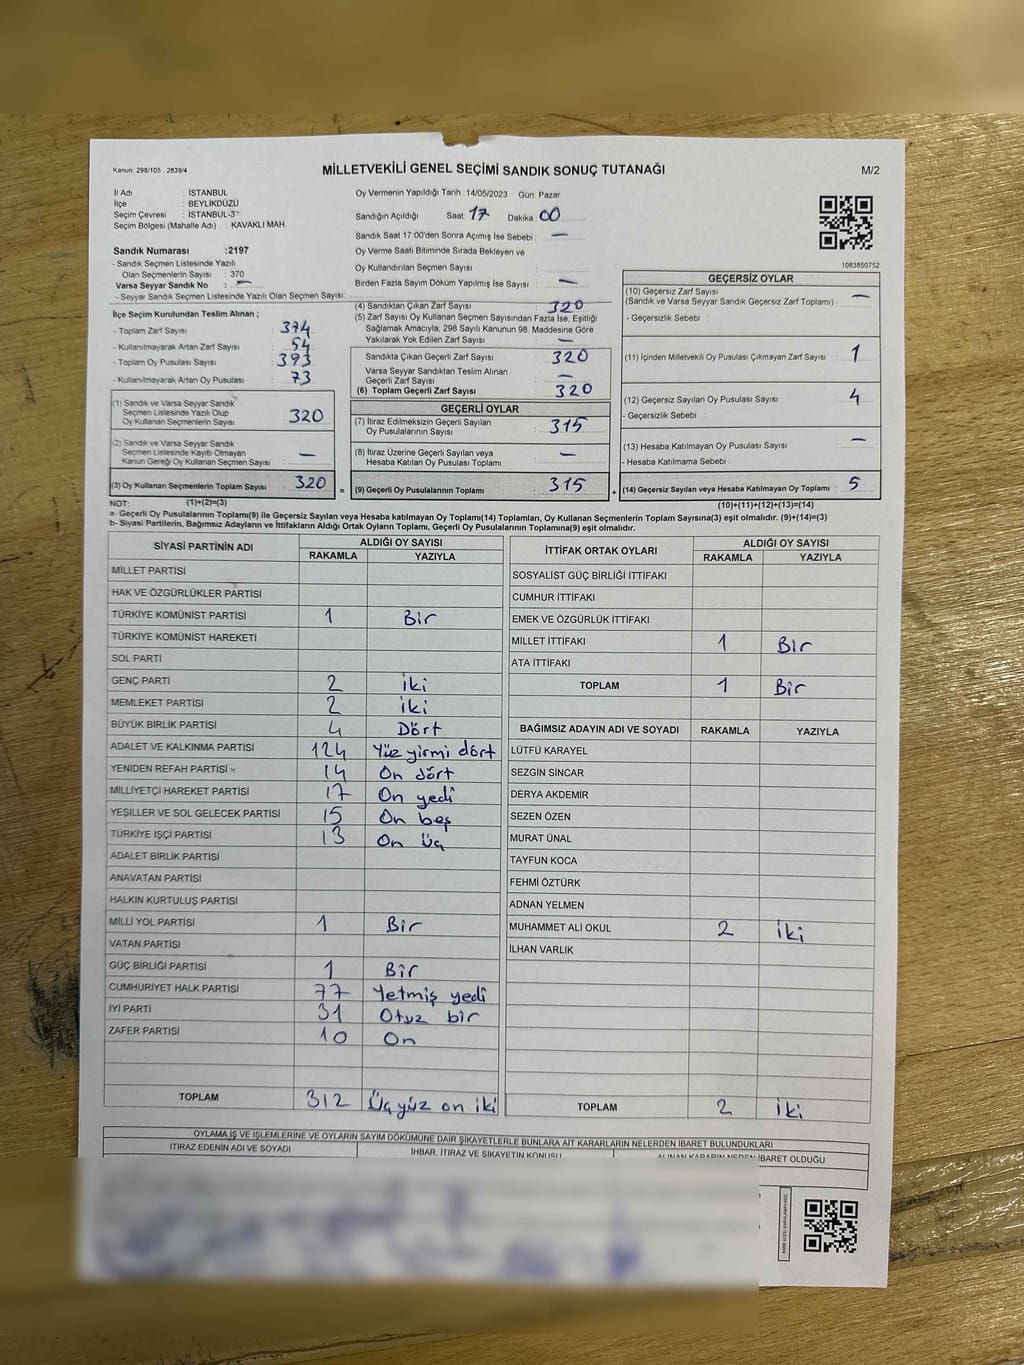 Kanun: 298/105 , 2839/4
MİLLETVEKİLİ GENEL SEÇİMİ SANDIK SONUÇ TUTANAĞI
M/2
İl Adı : İSTANBUL
İlçe : BEYLİKDÜZÜ
Seçim Çevresi : İSTANBUL-3
Seçim Bölgesi (Mahalle Adı) : KAVAKLI MAH.
Sandık Numarası :2197
- Sandık Seçmen Listesinde Yazılı
Olan Seçmenlerin Sayısı : 370
Varsa Seyyar Sandık No : —
- Seyyar Sandık Seçmen Listesinde Yazılı Olan Seçmen Sayısı:
İlçe Seçim Kurulundan Teslim Alınan ;
- Toplam Zarf Sayısı : 374
- Kullanılmayarak Artan Zarf Sayısı : 54
- Toplam Oy Pusulası Sayısı : 393
- Kullanılmayarak Artan Oy Pusulası : 73
(1) Sandık ve Varsa Seyyar Sandık
Seçmen Listesinde Yazılı Olup
Oy Kullanan Seçmenlerin Sayısı : 320
(2) Sandık ve Varsa Seyyar Sandık
Seçmen Listesinde Kayıtlı Olmayan
Kanun Gereği Oy Kullanan Seçmen Sayısı : —
(3) Oy Kullanan Seçmenlerin Toplam Sayısı : 320
Oy Vermenin Yapıldığı Tarih : 14/05/2023 Gün: Pazar
Sandığın Açıldığı Saat: 17 Dakika: 00
Sandık Saat 17:00'den Sonra Açımış İse Sebebi : —
Oy Verme Saati Bitiminde Sırada Bekleyen ve
Oy Kullandırılan Seçmen Sayısı :
Birden Fazla Sayım Döküm Yapılmış İse Sayısı : —
(4) Sandıktan Çıkan Zarf Sayısı : 320
(5) Zarf Sayısı Oy Kullanan Seçmen Sayısından Fazla İse, Eşitliği
Sağlamak Amacıyla, 298 Sayılı Kanunun 98. Maddesine Göre
Yakılarak Yok Edilen Zarf Sayısı : —
Sandıkta Çıkan Geçerli Zarf Sayısı : 320
Varsa Seyyar Sandıktan Teslim Alınan
Geçerli Zarf Sayısı : —
(6) Toplam Geçerli Zarf Sayısı : 320
GEÇERLİ OYLAR
(7) İtiraz Edilmeksizin Geçerli Sayılan
Oy Pusulalarının Sayısı : 315
(8) İtiraz Üzerine Geçerli Sayılan veya
Hesaba Katılan Oy Pusulası Toplamı : —
= (9) Geçerli Oy Pusulalarının Toplamı : 315
1083850752
GEÇERSİZ OYLAR
(10) Geçersiz Zarf Sayısı : —
(Sandık ve Varsa Seyyar Sandık Geçersiz Zarf Toplamı)
- Geçersizlik Sebebi :
(11) İçinden Milletvekili Oy Pusulası Çıkmayan Zarf Sayısı : 1
(12) Geçersiz Sayılan Oy Pusulası Sayısı : 4
- Geçersizlik Sebebi :
(13) Hesaba Katılmayan Oy Pusulası Sayısı : —
- Hesaba Katılmama Sebebi :
+ (14) Geçersiz Sayılan veya Hesaba Katılmayan Oy Toplamı : 5
NOT: (1)+(2)=(3)
(10)+(11)+(12)+(13)=(14)
a- Geçerli Oy Pusulalarının Toplamı(9) ile Geçersiz Sayılan veya Hesaba katılmayan Oy Toplamı(14) Toplamları, Oy Kullanan Seçmenlerin Toplam Sayısına(3) eşit olmalıdır. (9)+(14)=(3)
b- Siyasi Partilerin, Bağımsız Adayların ve İttifakların Aldığı Ortak Oyların Toplamı, Geçerli Oy Pusulalarının Toplamına(9) eşit olmalıdır.
SİYASİ PARTİNİN ADI ALDIĞI OY SAYISI
RAKAMLA YAZIYLA
MİLLET PARTİSİ
HAK VE ÖZGÜRLÜKLER PARTİSİ
TÜRKİYE KOMÜNİST PARTİSİ 1 Bir
TÜRKİYE KOMÜNİST HAREKETİ
SOL PARTİ
GENÇ PARTİ 2 iki
MEMLEKET PARTİSİ 2 iki
BÜYÜK BİRLİK PARTİSİ 4 Dört
ADALET VE KALKINMA PARTİSİ 124 Yüz yirmi dört
YENİDEN REFAH PARTİSİ 14 On dört
MİLLİYETÇİ HAREKET PARTİSİ 17 On yedi
YEŞİLLER VE SOL GELECEK PARTİSİ 15 On beş
TÜRKİYE İŞÇİ PARTİSİ 13 On üç
ADALET BİRLİK PARTİSİ
ANAVATAN PARTİSİ
HALKIN KURTULUŞ PARTİSİ
MİLLİ YOL PARTİSİ 1 Bir
VATAN PARTİSİ
GÜÇ BİRLİĞİ PARTİSİ 1 Bir
CUMHURİYET HALK PARTİSİ 77 Yetmiş yedi
İYİ PARTİ 31 Otuz bir
ZAFER PARTİSİ 10 On
TOPLAM 312 Üçyüz on iki
İTTİFAK ORTAK OYLARI ALDIĞI OY SAYISI
RAKAMLA YAZIYLA
SOSYALİST GÜÇ BİRLİĞİ İTTİFAKI
CUMHUR İTTİFAKI
EMEK VE ÖZGÜRLÜK İTTİFAKI
MİLLET İTTİFAKI 1 Bir
ATA İTTİFAKI
TOPLAM 1 Bir
BAĞIMSIZ ADAYIN ADI VE SOYADI RAKAMLA YAZIYLA
LÜTFÜ KARAYEL
SEZGİN SİNCAR
DERYA AKDEMİR
SEZEN ÖZEN
MURAT ÜNAL
TAYFUN KOCA
FEHMİ ÖZTÜRK
ADNAN YELMEN
MUHAMMET ALİ OKUL 2 iki
İLHAN VARLIK
TOPLAM 2 iki
OYLAMA İŞ VE İŞLEMLERİNE VE OYLARIN SAYIM DÖKÜMÜNE DAİR ŞİKAYETLERLE BUNLARA AİT KARARLARIN NELERDEN İBARET BULUNDUKLARI
İTİRAZ EDENİN ADI VE SOYADI İHBAR, İTİRAZ VE ŞİKAYETİN KONUSU ALINAN KARARIN NEDEN İBARET OLDUĞU